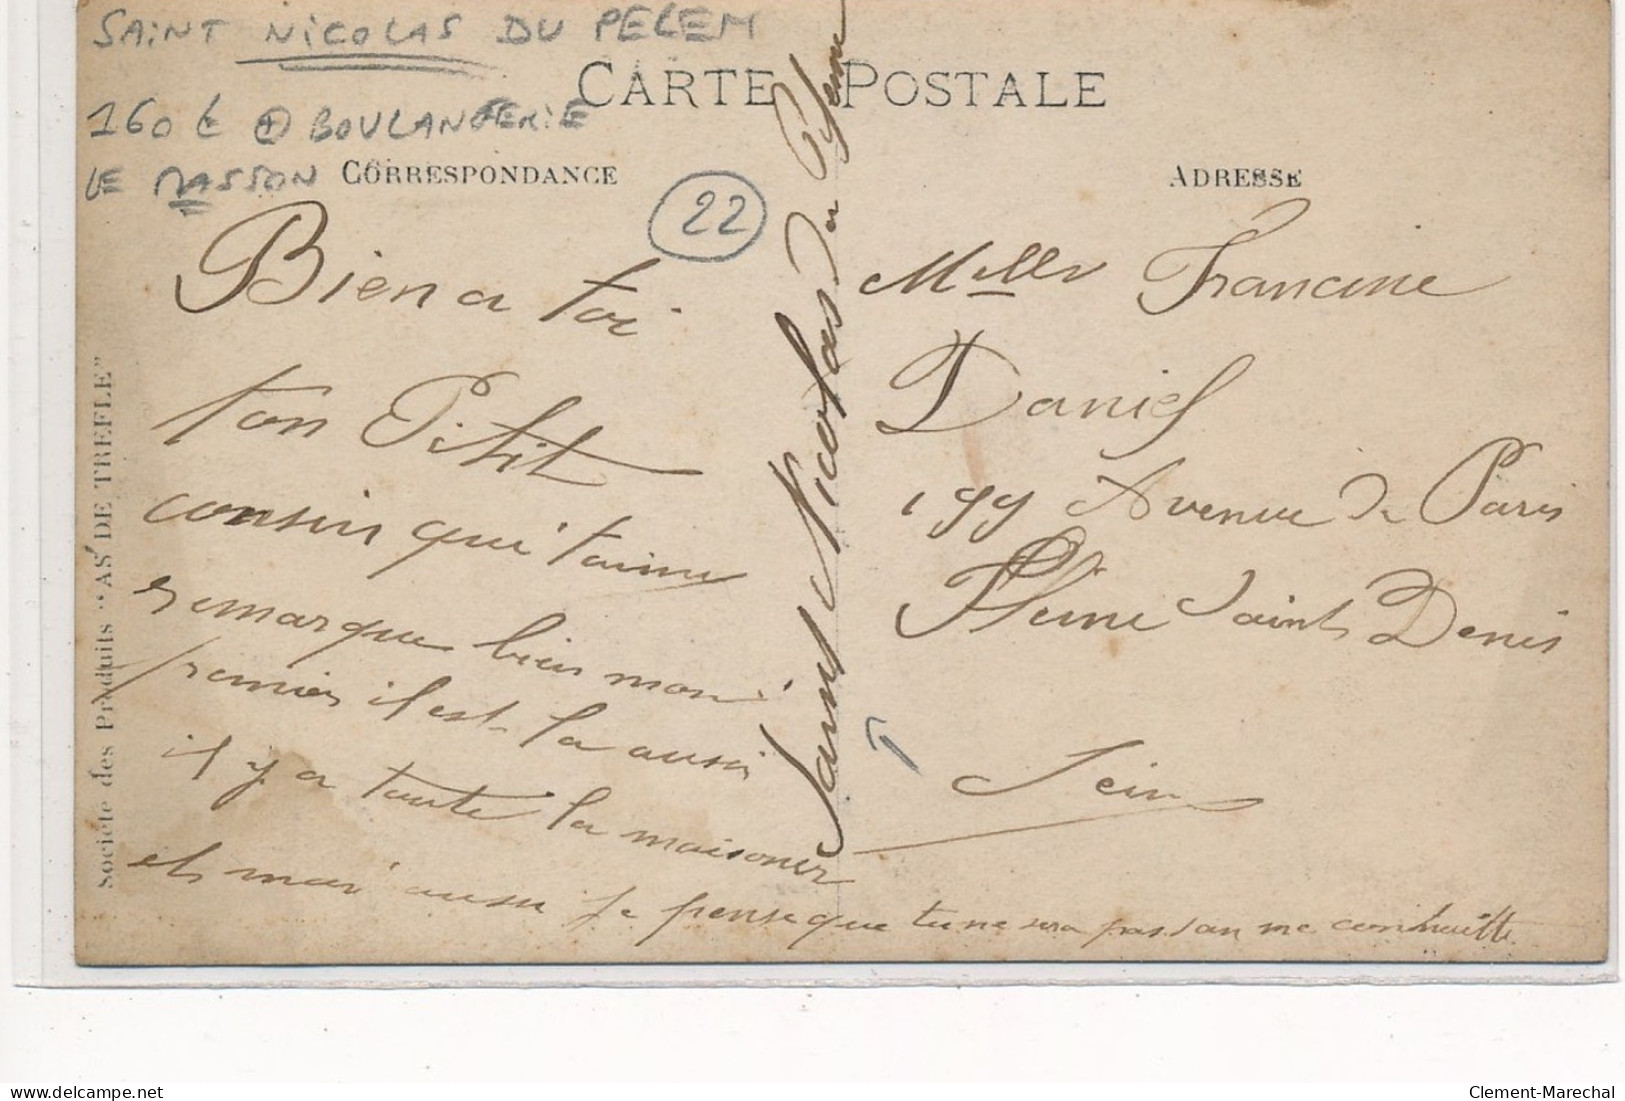 SAINT NICOLAS DU PELEM
CARTE POSTALE
160 € + BOULANGERIE
LE MASSON
CORRESPONDANCE
ADRESSE
22
Bien a toi
ton Petit
cousin qui t'aime
remarque bien mon
pernier il est la aussi
il y a toute la maisoner
et moi aussi je pense que tu ne sera pas san me conhnaitte
Saint Nicolas du Pelem
Melle Francine
Daniel
199 Avenue de Paris
Pleine Saint Denis
Seine
Societe des Produits "AS DE TREFLE"
Clement-Marechal